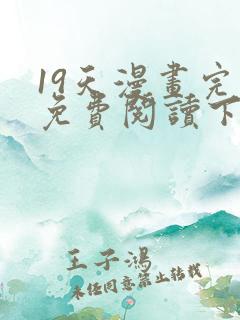 19天漫畫完
免費閱讀下
王子鴻
未經同意禁止轉載